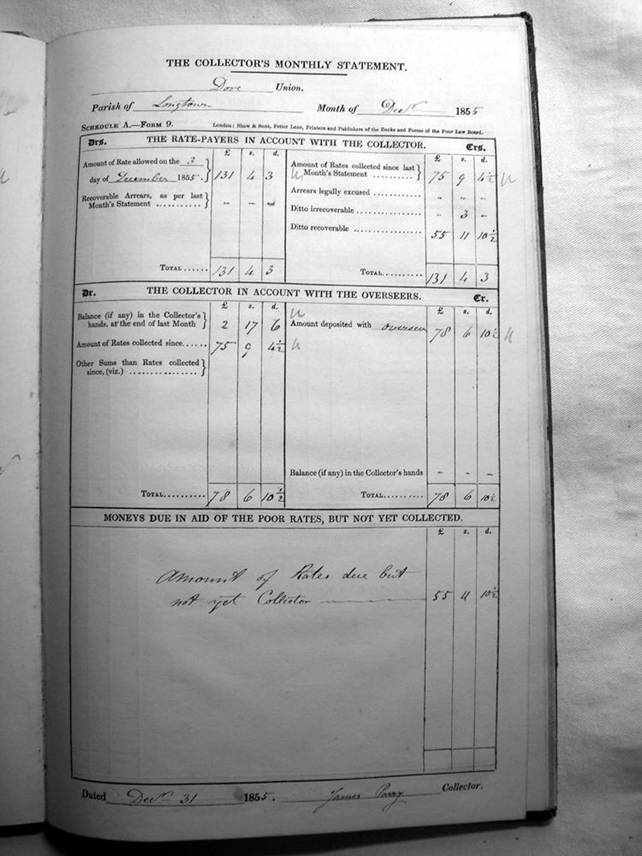 THE COLLECTOR'S MONTHLY STATEMENT.
Dore Union.
Parish of Longtown Month of Decr 1855
SCHEDULE A.—FORM 9. London: Shaw & Sons, Fetter Lane, Printers and Publishers of the Books and Forms of the Poor Law Board.
Drs. THE RATE-PAYERS IN ACCOUNT WITH THE COLLECTOR. Crs.
£ s. d. £ s. d.
Amount of Rate allowed on the 3
day of December 1855. 131 4 3
Recoverable Arrears, as per last
Month's Statement ........... – – –
TOTAL...... 131 4 3
Amount of Rates collected since last
Month's Statement .......... 75 9 4½
Arrears legally excused ............ – – –
Ditto irrecoverable ................ – 3 –
Ditto recoverable .................. 55 11 10½
TOTAL.......... 131 4 3
Dr. THE COLLECTOR IN ACCOUNT WITH THE OVERSEERS. Cr.
£ s. d. £ s. d.
Balance (if any) in the Collector's
hands, at the end of last Month 2 17 6
Amount of Rates collected since..... 75 9 4½
Other Sums than Rates collected
since, (viz.) .................
TOTAL.......... 78 6 10½
Amount deposited with overseer 78 6 10½
Balance (if any) in the Collector's hands – – –
TOTAL.......... 78 6 10½
MONEYS DUE IN AID OF THE POOR RATES, BUT NOT YET COLLECTED.
£ s. d.
Amount of Rates due but
not yet Collector 55 11 10½
Dated Decr 31 1855. James Parry Collector.